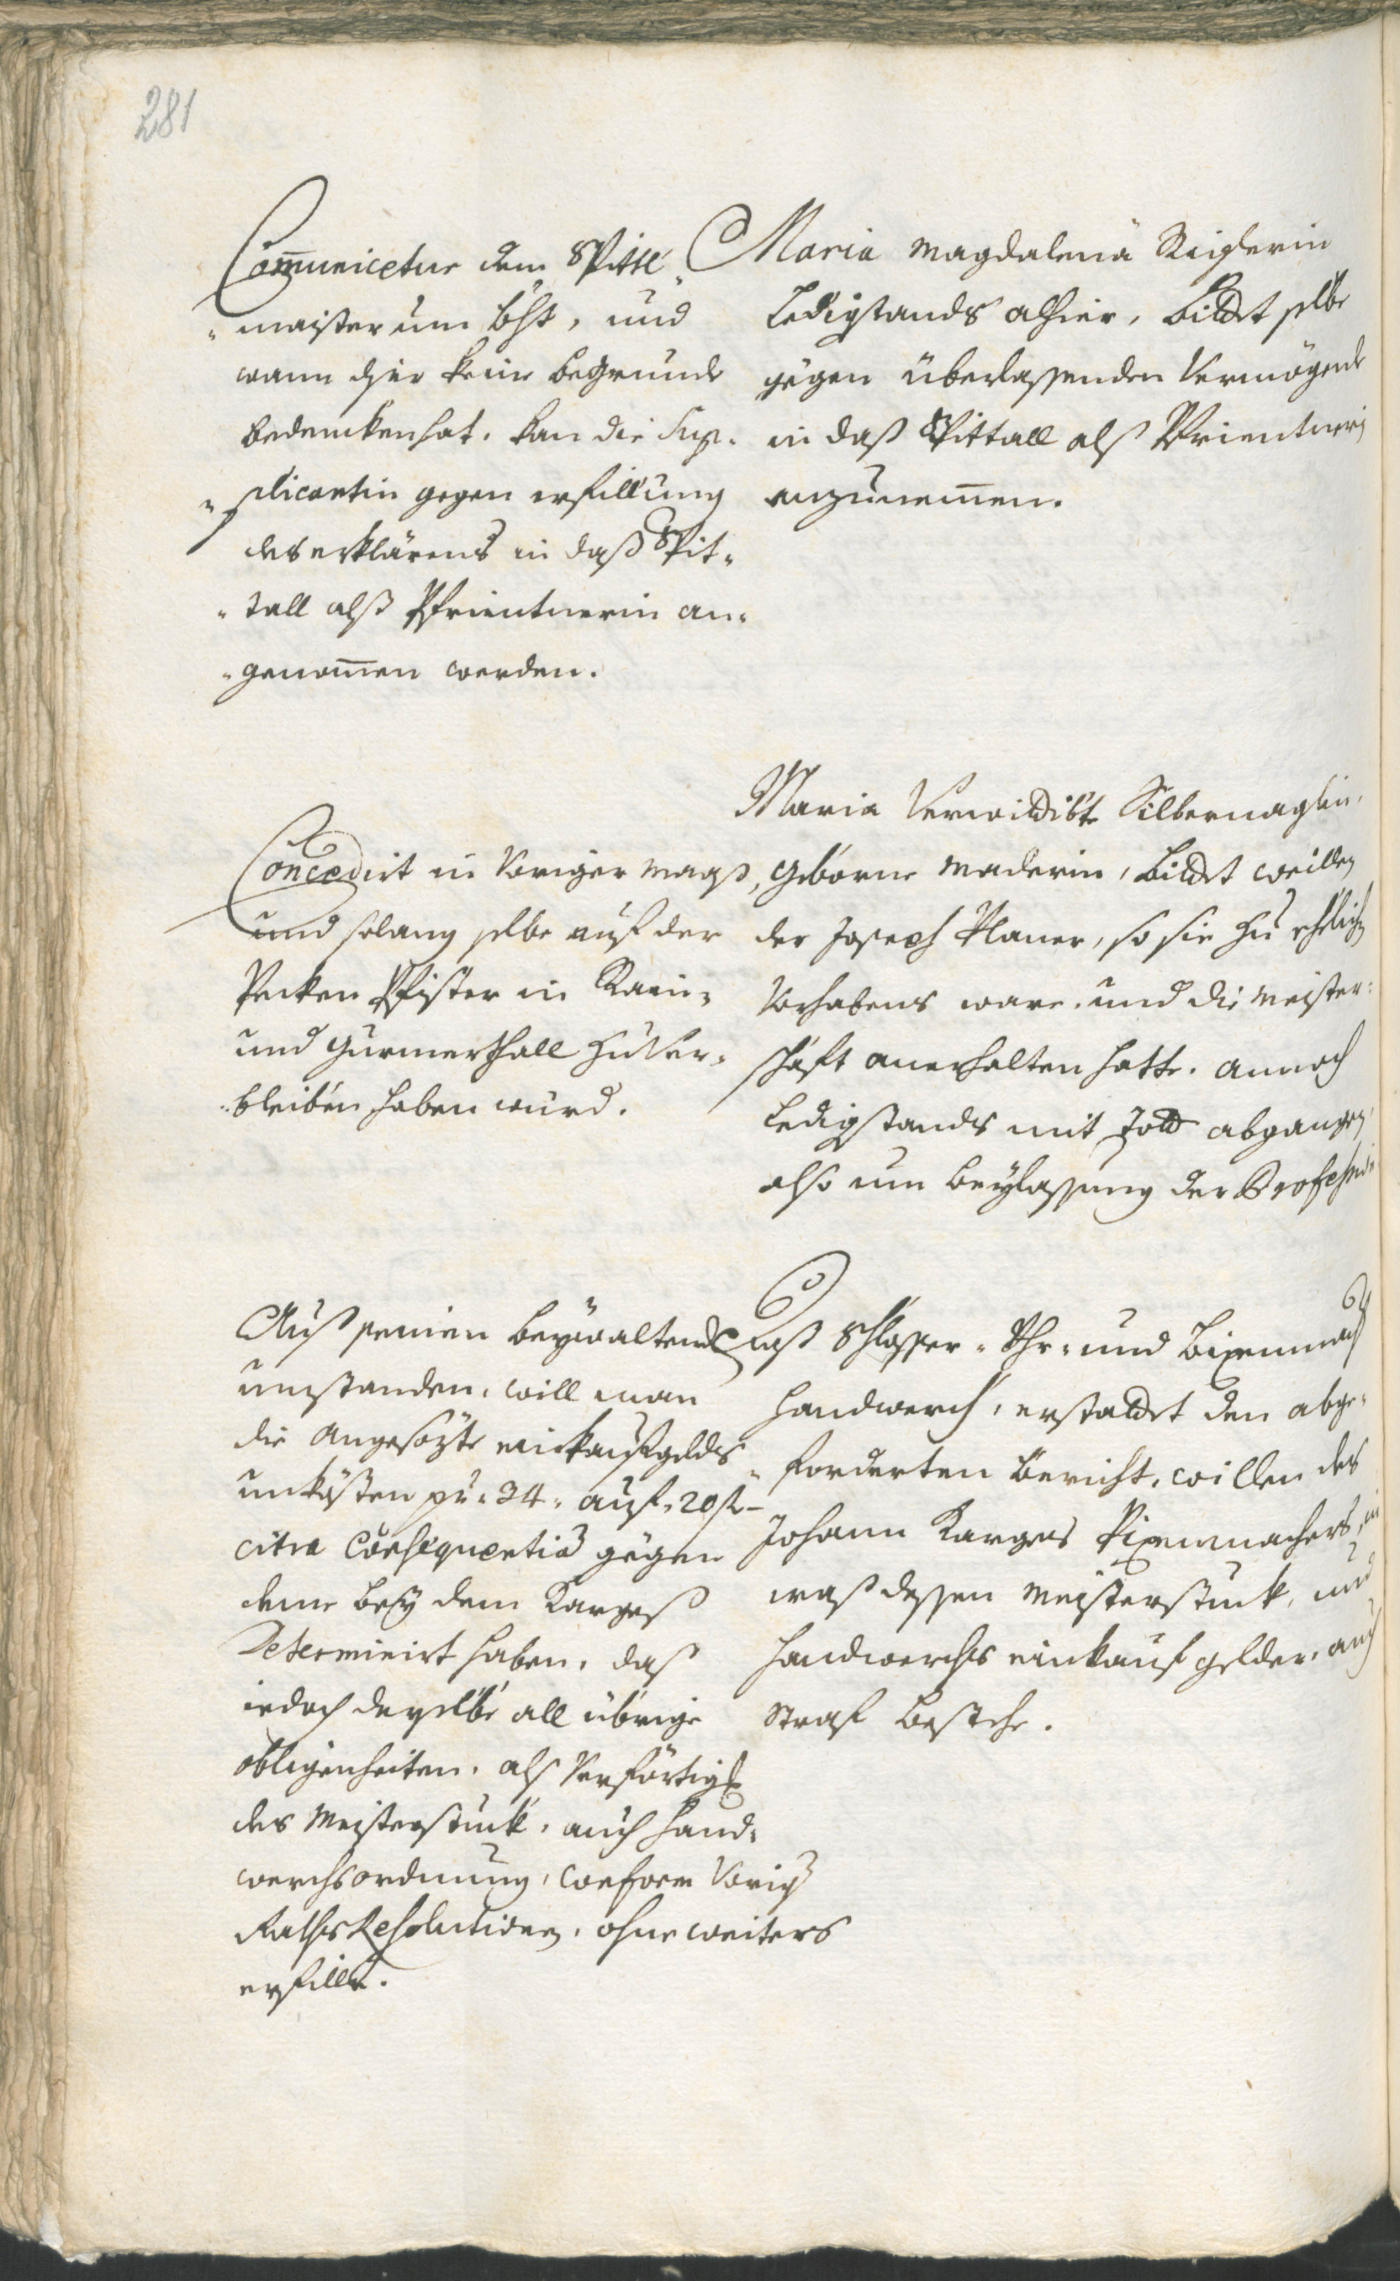 281
Com̄unicetur dem Spitt¬
maister um bſt, und
wann diser keine begrunde
bedencken hat, kan die Sup¬
plicantin gegen erfillung
des erklärens in daß Spit¬
tall alß Pfrientnerin an¬
genom̄en werden.
Maria Magdalena Riglerin
Ledigstands alhier, bitet selbe
gegen überlassenden Vermögens
in daß Spittall alß Pfrientnerin
anzunemen.
Concedirt in voriger mass,
und solang selbe auf der
Pecken Pfister in Rain¬
und Gurmerthall zu ver¬
bleiben haben wurd.
Maria verwittibte Silbernaglin,
geborne Maderin, bitet weillen
der Joseph Planer, so sie zu ehelichen
Vorhabens ware, und die Meister¬
schaft anerhalten hatte, annoch
Ledigstands mit Todt abgangen,
also um beylassung der Profession
Auß seinen beywaltend
umstanden, will man
die angesözte einkaufgelds
unkösten pr. 34. auf 20 fl
citra Consequentia gegen
deme bey dem Karges
Determinirt haben, daß
iedoch derselbe all übrige
obligenheiten, als Verförtig
des Meisterstuck, auch Hand¬
werchsordnung, conform vorig
Raths Resolutionen, ohne weiters
erfille.
Daß Schlosser- Uhr- und Bixenmach
Handwerch, erstattet den abge¬
forderten Bericht, willen des
Johann Karges Pixenmachers, in
was dessen Meisterstuck, und
Handwerchs einkauf gelder, auch
Straf bestehe.